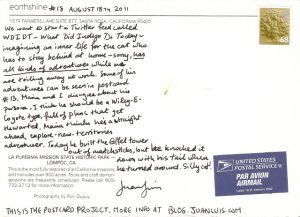 earthshine #18 AUGUST 18TH 2011
1519 FARMERS LANE SUITE 277, SANTA ROSA, CALIFORNIA 95405
We want to start a Twitter feed called
WDIDT - What Did Indigo Do Today -
imagining an inner life for the cat who
has to stay behind at home - sorry, has
all kinds of adventures while we
are toiling away at work. Some of his
adventures can be seen in postcard
#13. Maina and I disagree about his
persona. I think he should be a Wiley-E-
Coyote type, full of plans that get
thwarted. Maina thinks he's a straight
ahead, explore-new-territories
adventurer. Today he built the Eiffel tower
out of matchsticks, but he knocked it
down with his tail when
he turned around. Silly cat.
Juan Luis
LA PURISMA MISSION STATE HISTORIC PARK -
LOMPOC, CA.
This is the most fully restored of all California missions,
and includes over 900 acres. Tours and craft demon-
strations are frequently scheduled. Please call 805-
733-3713 for more information
Photo by Ron Dusian
68
UNITED STATES
POSTAL SERVICE
PAR AVION
AIRMAIL
THIS IS THE POSTCARD PROJECT. MORE INFO AT BLOG.JUANLUIS.COM